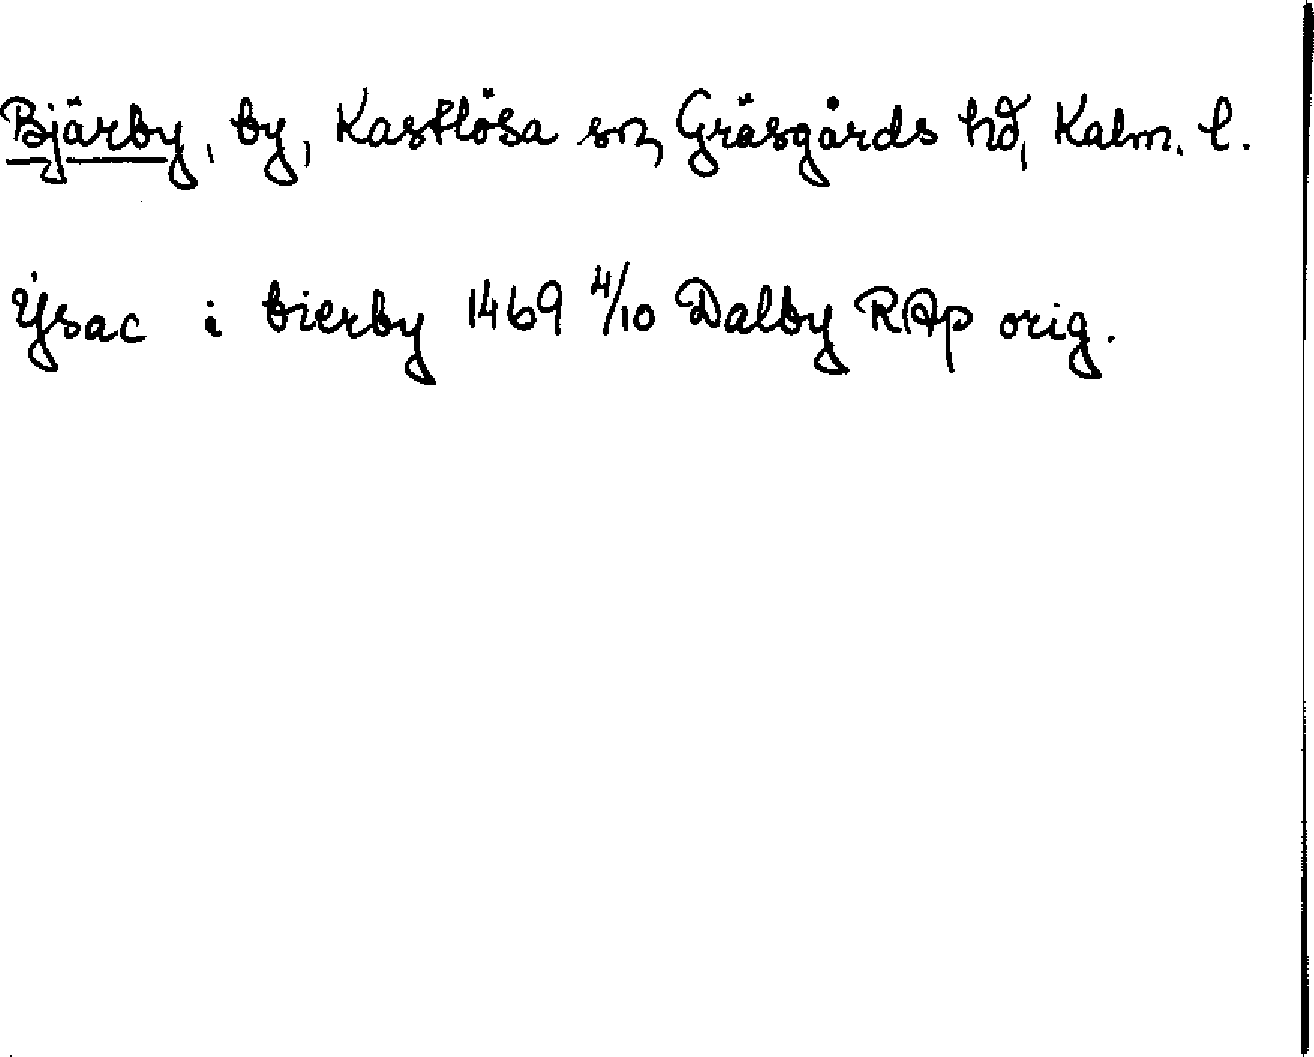 Bjärby, by, Kastlösa sn, Gräsgårds hd, Kalm. l.
Ẏsac i bierby 1469 4/10 Dalby RAp orig.